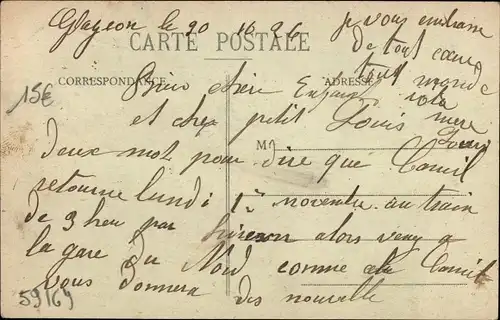 Glageon le 20 10 26
je vous embrasse
de tout cœur
tout monde
CARTE POSTALE
CORRESPONDANCE
ADRESSE
15€
Bien chere Enfant
et cher ptit Louis
mere
M
deux mot pour dire que Camil
retourne lundi 1er novembre au train
de 3 heu par alors veny a
la gare du Nord comme cela Camil
vous donnera des nouvelle
59169